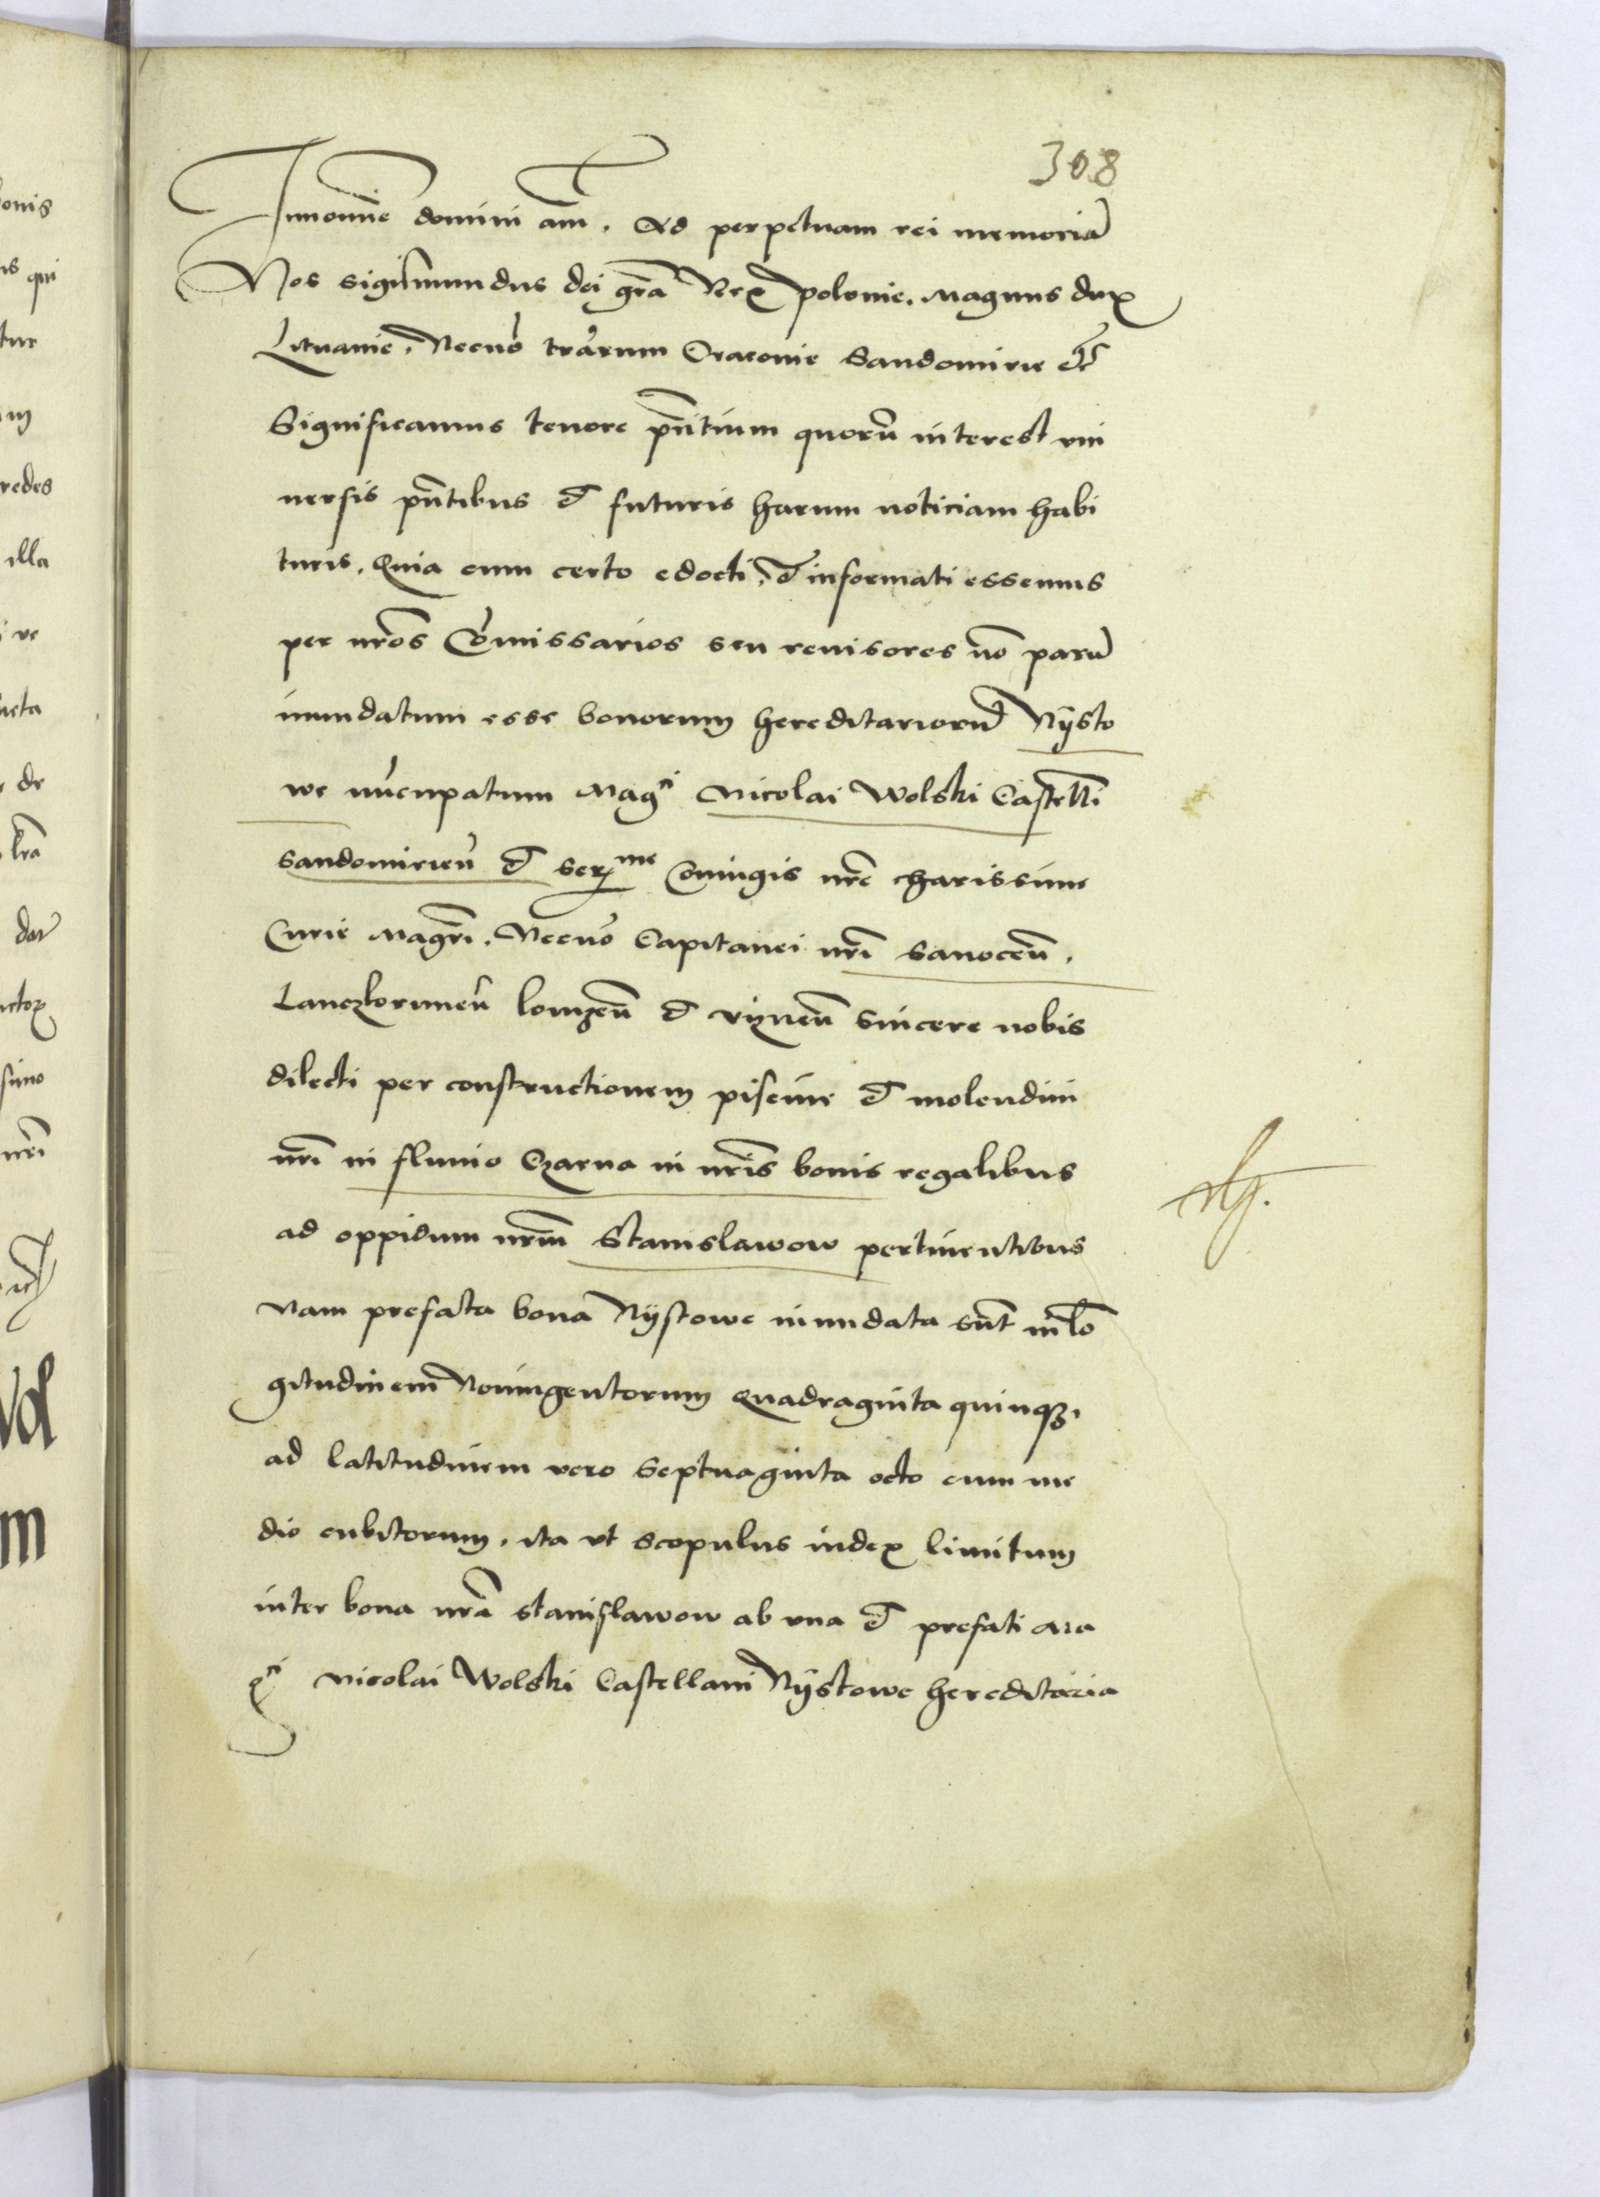 308
Innomine domini am̄. Ad perpetuam rei memoriā
Nos sigismundus dei gr̄a Rex polonie. Magnus dux
Lituanie. Necnō tr̄arum Cracouie Sandomirie etc̄
Significamus tenore pn̄tium quorū interest vni
uersis pn̄tibus et futuris harum noticiam habi
turis. Quia cum certo edocti, et informati essemus
per nr̄os Cōmissarios seu reuisores nō parū
inundatum esse bonorum hereditariorū Nÿsto
we nūcupatum Magci Nicolai Wolski Castellī
Sandomirieñ et Serme Coniugis nr̄e charissime
Curie Magr̄i. Necnō Capitanei nr̄i Sanoceñ.
Lanczkoruneñ lomzeñ et vÿzneñ sincere nobis
dilecti per constructionem piscine et molendini
nr̄i in fluuio Czarna in nr̄is bonis regalibus
ad oppidum nr̄m Stanislawow pertinentibus
Nam prefata bona Nÿstowe inundata sūt in lō
gitudinem Noningentorum quadraginta quinqz.
ad latitudinem vero Septuaginta octo cum me
dio cubitorum. ita vt scopulus index limitum
inter bona nr̄a stanislawow ab vna et prefati Ma
gci Nicolai Wolski Castellani Nÿstowe hereditaria